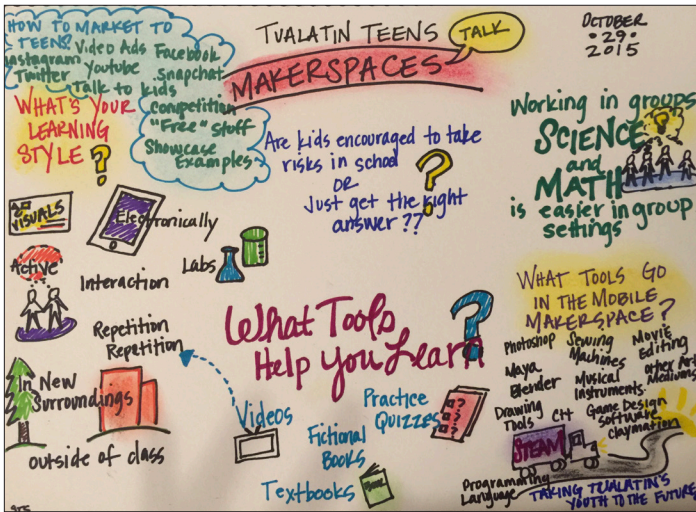 HOW TO MARKET TO
TEENS?
Video Ads
Facebook
Instagram
Youtube
Snapchat
Twitter
Talk to kids
Competition
"Free" stuff
Showcase
Examples
TUALATIN TEENS
TALK
MAKERSPACES
OCTOBER
29
2015
WHAT'S YOUR
LEARNING
STYLE?
Are kids encouraged to take
risks in school
OR
Just get the right
answer??
?
Working in groups
SCIENCE
and
MATH
is easier in group
settings
?
VISUALS
Electronically
Labs
Active
Interaction
Repetition
Repetition
In New
Surroundings
outside of class
What Tools
Help you Learn
?
Videos
Practice
Quizzes
Fictional
BOOKS
Textbooks
WHAT TOOLS GO
IN THE MOBILE
MAKERSPACE?
Photoshop
Sewing
Machines
Movie
Editing
Maya
Blender
Musical
Instruments
other Art
Mediums
Drawing
Tools
C++
Game Design
Software
claymation
STEAM
Programming
Language
TAKING TUALATIN'S
YOUTH TO THE FUTURE